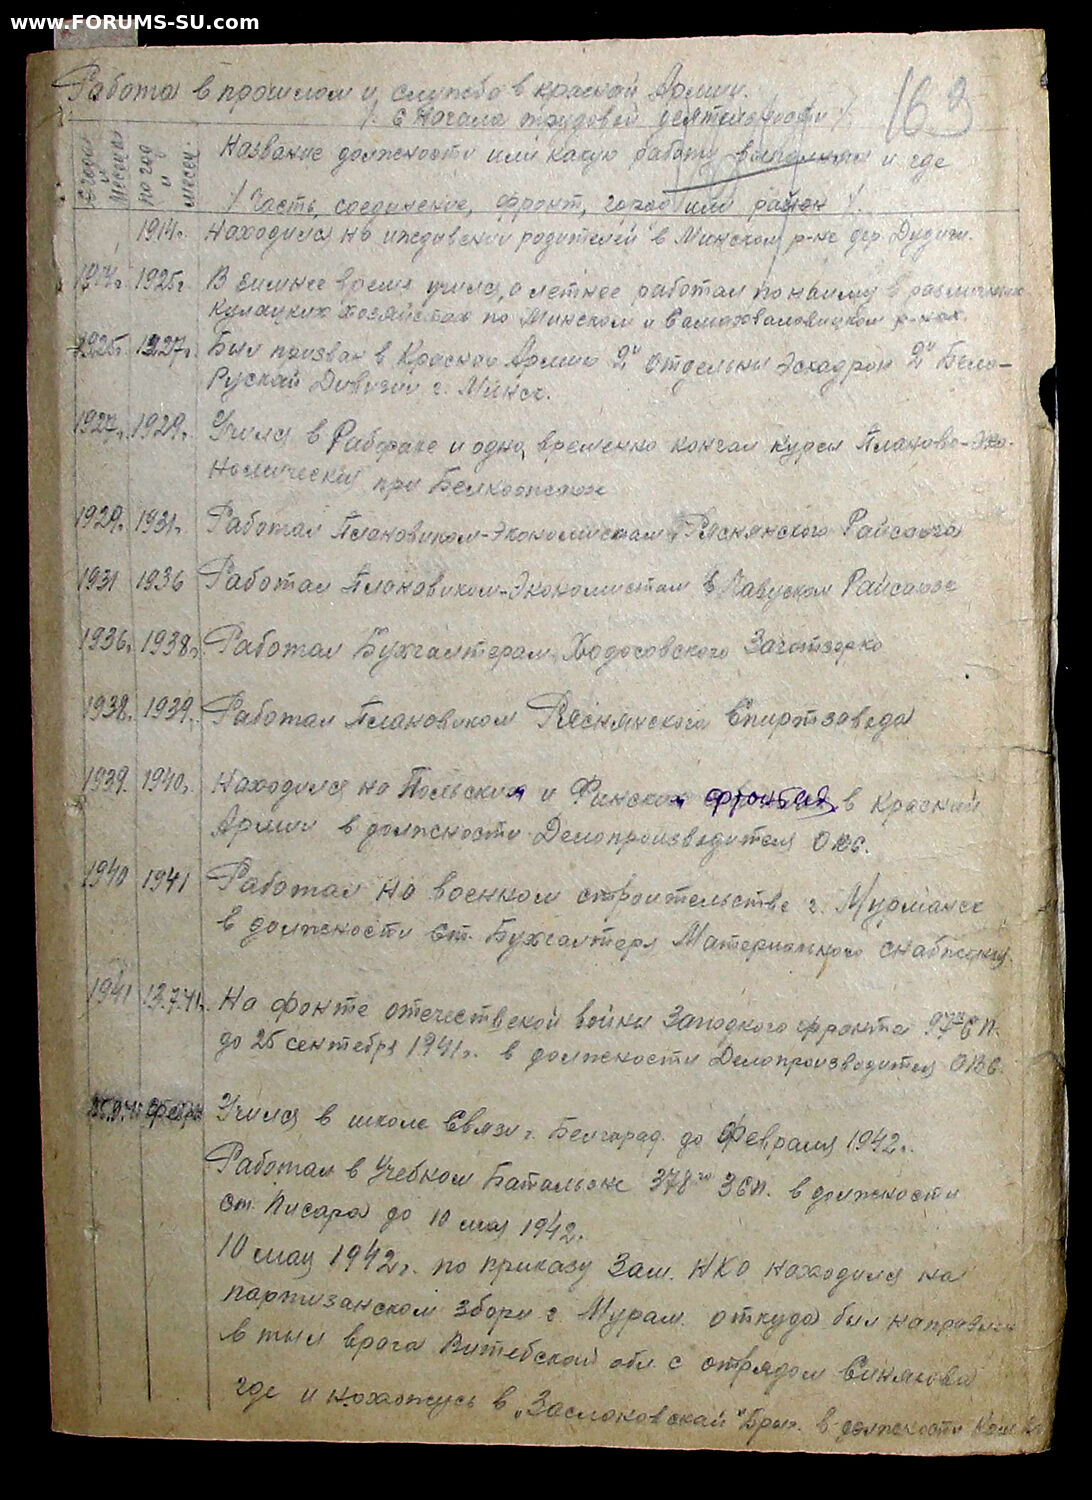 www.FORUMS-SU.com
Работа в прошлом и служба в красной Армии.
/ с Начала трудовой деятельности /.
163
С года и месяца
по год и месяц.
Название должности или какую работу выполнял и где
/ Часть, соединение, фронт, город или район /.
1914г. Находился на иждивении родителей в Минском р-не дер. Дудичи.
1914г. 1925г. В зимнее время учился, а летнее работал по найму в различных
кулацких хозяйствах по Минском и Самохваловицком р-нах.
1925г. 1927г. Был призван в Красной Армии 2й отдельны Эскадрон 2й Бело-
Руской Дивизии г. Минск.
1927г. 1929г. Учился в Рабфаке и одно временно кончал курсы Планово-Эко-
номически при Белкоопсоюзе
1929г. 1931г. Работал Плановиком-Экономистам Ряснянского Райсоюза
1931 1936 Работал Плановиком-Экономистам в Чавуском Райсоюзе
1936г. 1938г. Работал Бухгалтерам Ходосовского Заготзерно
1938. 1939. Работал Плановиком Ряснянского Спиртзавода
1939. 1940г. Находился на Польским и Финским фронтах в красной
Армии в должности Делопроизводителя ОВС.
1940 1941 Работал на военном строительстве г. Мурманск
в должности Ст. Бухгалтера Материального снабжения
1941 13.7.41г. На фронте отечественной войны Западного фронта 97й СП.
до 25 сентября 1941г. в должности Делопроизводителя ОВС.
25.9.41 февр Учился в школе Связи г. Белгород до Февраля 1942г.
Работал в Учебном Батальоне 378го ЗСП. в должности
ст. Писаря до 10 мая 1942.
10 мая 1942г. по приказу Зам. НКО находился на
партизанском зборе г. Мурам откуда был направлен
в тыл врага Витебской обл. с отрядом Синякова
где и нахожусь в "Заслоновской" Бриг. в должности